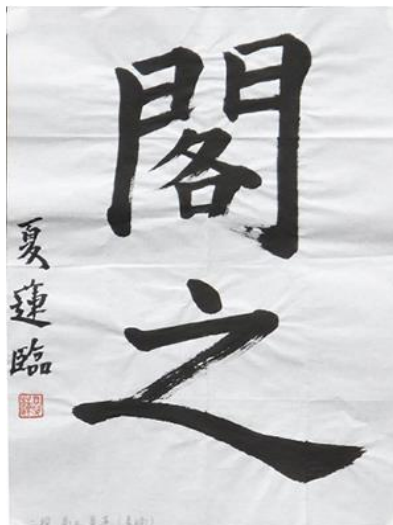 閣之
夏蓮臨